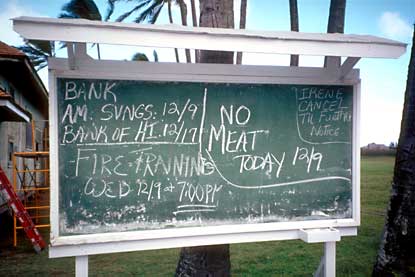 BANK
AM. SVNGS: 12/9
BANK OF HI. 12/17
FIRE TRAINING
WED. 12/9 at 7:00PM
NO
MEAT
TODAY 12/9
IRENE
CANCEL
TIL FURTHER
NOTICE